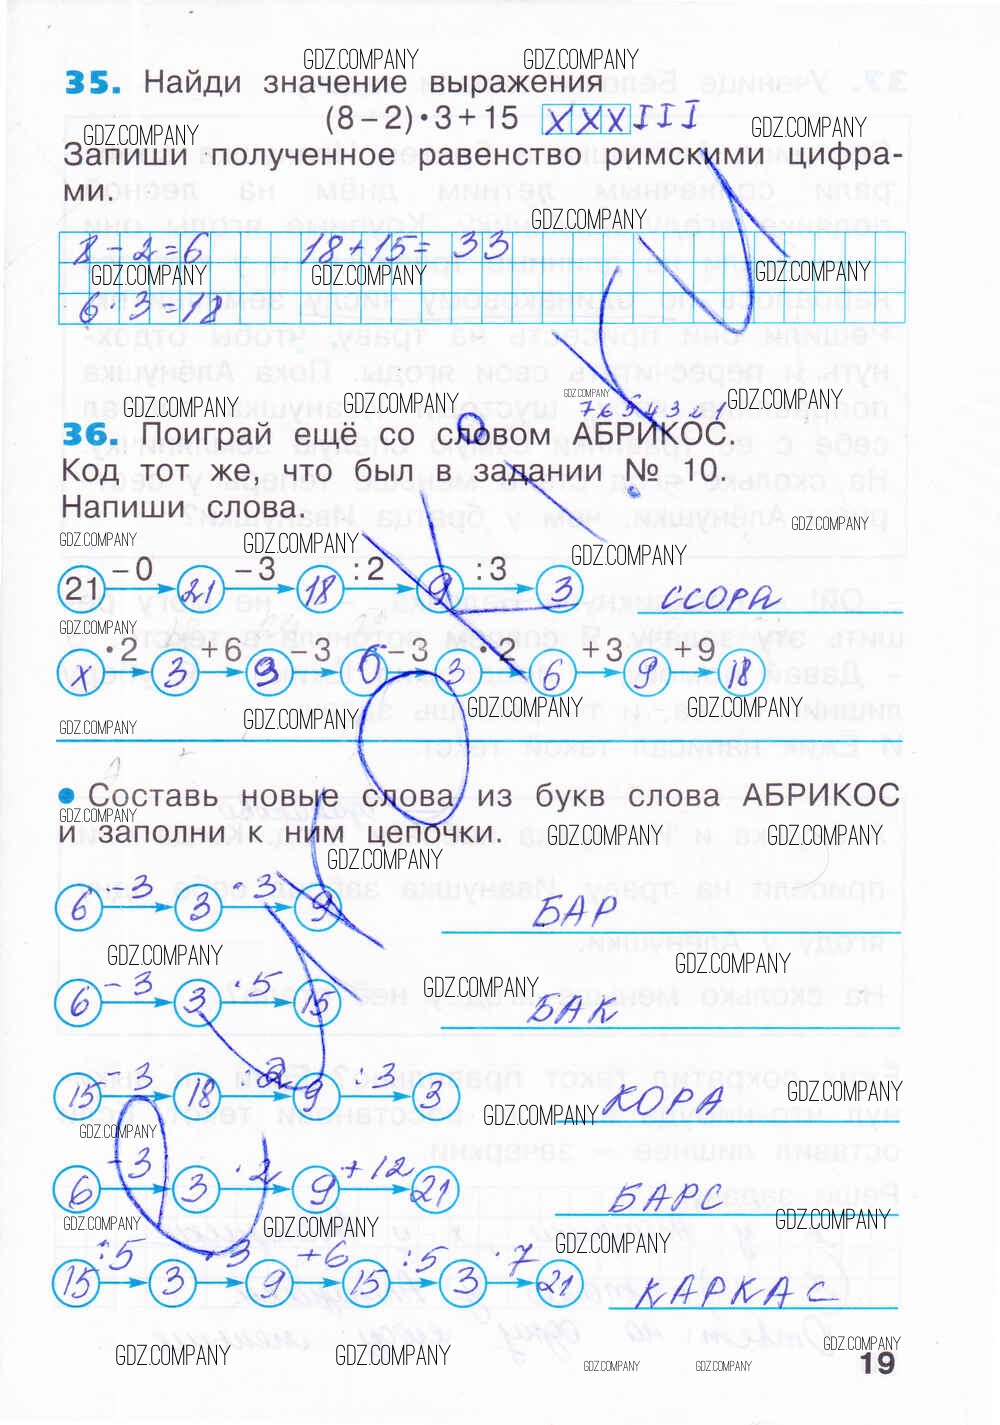 GDZ.COMPANY GDZ.COMPANY
35. Найди значение выражения
(8−2)•3+15 XXXIII
GDZ.COMPANY GDZ.COMPANY
Запиши полученное равенство римскими цифра-
ми.
GDZ.COMPANY
8-2=6 18+15= 33
GDZ.COMPANY GDZ.COMPANY GDZ.COMPANY
6·3=18
GDZ.COMPANY GDZ.COMPANY GDZ.COMPANY GDZ.COMPANY
7 6 5 4 3 2 1
36. Поиграй ещё со словом АБРИКОС.
Код тот же, что был в задании № 10.
Напиши слова.
GDZ.COMPANY
GDZ.COMPANY GDZ.COMPANY GDZ.COMPANY
21 −0 21 −3 18 :2 9 :3 3 ССОРА
GDZ.COMPANY
x •2 3 +6 9 −3 6 −3 3 •2 6 +3 9 +9 18
GDZ.COMPANY GDZ.COMPANY GDZ.COMPANY GDZ.COMPANY
• Составь новые слова из букв слова АБРИКОС
GDZ.COMPANY
и заполни к ним цепочки.
GDZ.COMPANY GDZ.COMPANY
GDZ.COMPANY
6 -3 3 ·3 9 БАР
GDZ.COMPANY GDZ.COMPANY
GDZ.COMPANY
6 -3 3 ·5 15 БАК
15 -3 18 :2 9 :3 3 КОРА
GDZ.COMPANY GDZ.COMPANY
GDZ.COMPANY
6 -3 3 ·2 9 +12 21 БАРС
GDZ.COMPANY GDZ.COMPANY GDZ.COMPANY
GDZ.COMPANY
15 :5 3 ·3 9 +6 15 :5 3 ·7 21 КАРКАС
GDZ.COMPANY GDZ.COMPANY GDZ.COMPANY
GDZ.COMPANY GDZ.COMPANY
19